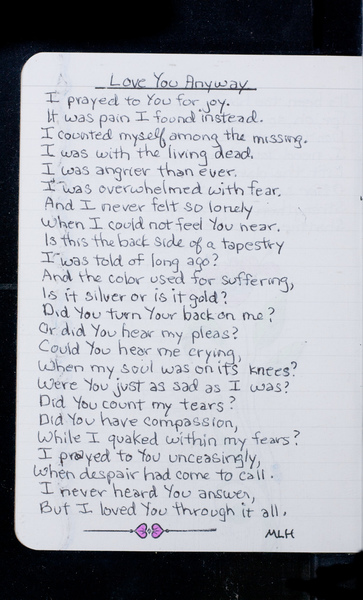 Love You Anyway
I prayed to You for joy.
It was pain I found instead.
I counted myself among the missing.
I was with the living dead.
I was angrier than ever.
I was overwhelmed with fear.
And I never felt so lonely
When I could not feel You near.
Is this the back side of a tapestry
I was told of long ago?
And the color used for suffering,
Is it silver or is it gold?
Did You turn Your back on me?
Or did You hear my pleas?
Could You hear me crying,
When my soul was on its knees?
Were You just as sad as I was?
Did You count my tears?
Did You have compassion,
While I quaked within my fears?
I prayed to You unceasingly,
When despair had come to call.
I never heard You answer,
But I loved You through it all.
MLH